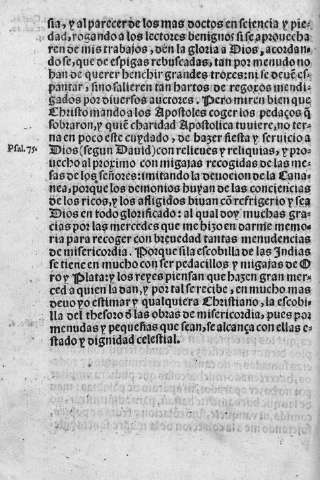 sia, y al parecer de los mas doctos en sciencia y pie-
dad, rogando a los lectores benignos si se aprouecha
ren de mis trabajos, den la gloria a Dios, acordan-
do se, que de espigas rebuscadas, tan por menudo no
han de querer henchir grandes troxes: ni se deuē es-
pantar, sino salieren tan hartos de regozos mendi-
gados por diuersos auctores. Pero miren bien que
Christo mando a los Apostoles coger los pedaços q̄
sobraron, y quiē charidad Apostolica tuuiere, no ter-
na en poco este cuydado, de hazer fiesta y seruicio a
Psal. 75. Dios (segun Dauid) con relieues y reliquias, y pro-
uecho al proximo con migajas recogidas de las me-
sas de los señores: imitando la deuocion de la Cana-
nea, porque los demonios huyan de las conciencias
de los ricos, y los afligidos biuan cō refrigerio y sea
Dios en todo glorificado: al qual doy muchas gra-
cias por las mercedes que me hizo en darme memo-
ria para recoger con breuedad tantas menudencias
de misericordia. Porque si la escobilla de las Indias
se tiene en mucho con ser pedacillos y migajas de O
ro y Plata: y los reyes piensan que hazen gran mer-
ced a quien la dan, y por tal se recibe, en mucho mas
deuo yo estimar y qualquiera Christiano, la escobi-
lla del thesoro d̄ las obras de misericordia, pues por
menudas y pequeñas que sean, se alcança con ellas e-
stado y dignidad celestial.